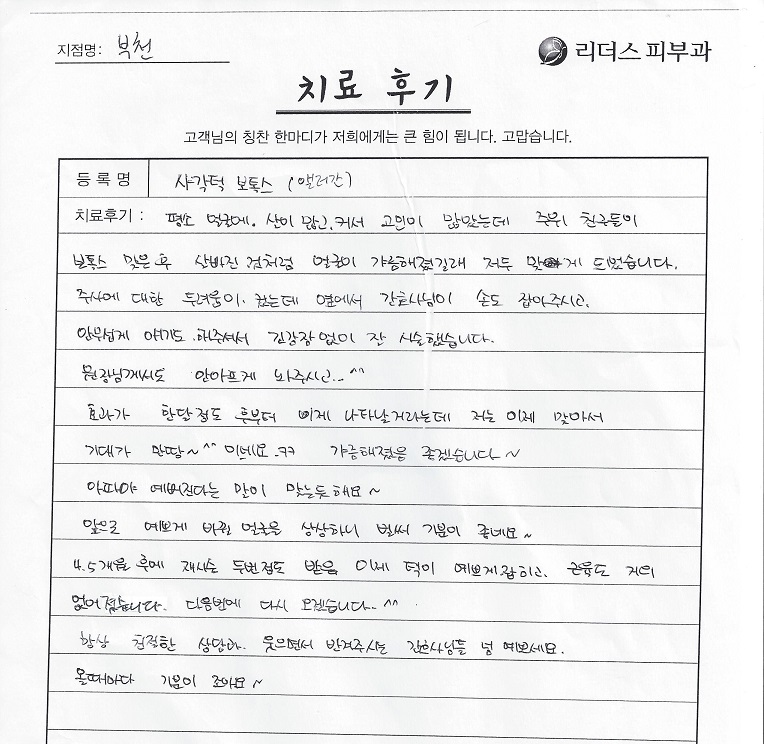 지점명: 부천
리더스 피부과
치료 후기
고객님의 칭찬 한마디가 저희에게는 큰 힘이 됩니다. 고맙습니다.
등 록 명 사각턱 보톡스 (앨러간)
치료후기 : 평소 얼굴에. 살이 많고. 커서 고민이 많았는데 주위 친구들이
보톡스 맞은 후 살빠진 것처럼 얼굴이 갸름해졌길래 저두 맞게 되었습니다.
주사에 대한 두려움이. 컸는데 옆에서 간호사님이 손도 잡아주시고.
안무섭게 얘기도. 해주셔서 긴강장없이 잘 시술했습니다.
원장님께서도 안아프게 놔주시고.. ^^
효과가 한달정도 후부터 이제 나타날거라는데 저는 이제 맞아서
기대가 만땅~^^ 이네요. ㅋㅋ 갸름해졌음 좋겠습니다~
아파야 예뻐진다는 말이 맞는듯해요~
앞으로 예쁘게 바뀔 얼굴을 상상하니 벌써 기분이 좋네요~
4.5개월 후에 재시술 두번정도 받음 이제 턱이 예쁘게잡히고. 근육도 거의
없어졌습니다. 다음번에 다시 오겠습니다.. ^^
항상 친절한 상담과. 웃으면서 반겨주시는 간호사님들 넘 예쁘세요.
올때마다 기분이 조아요~